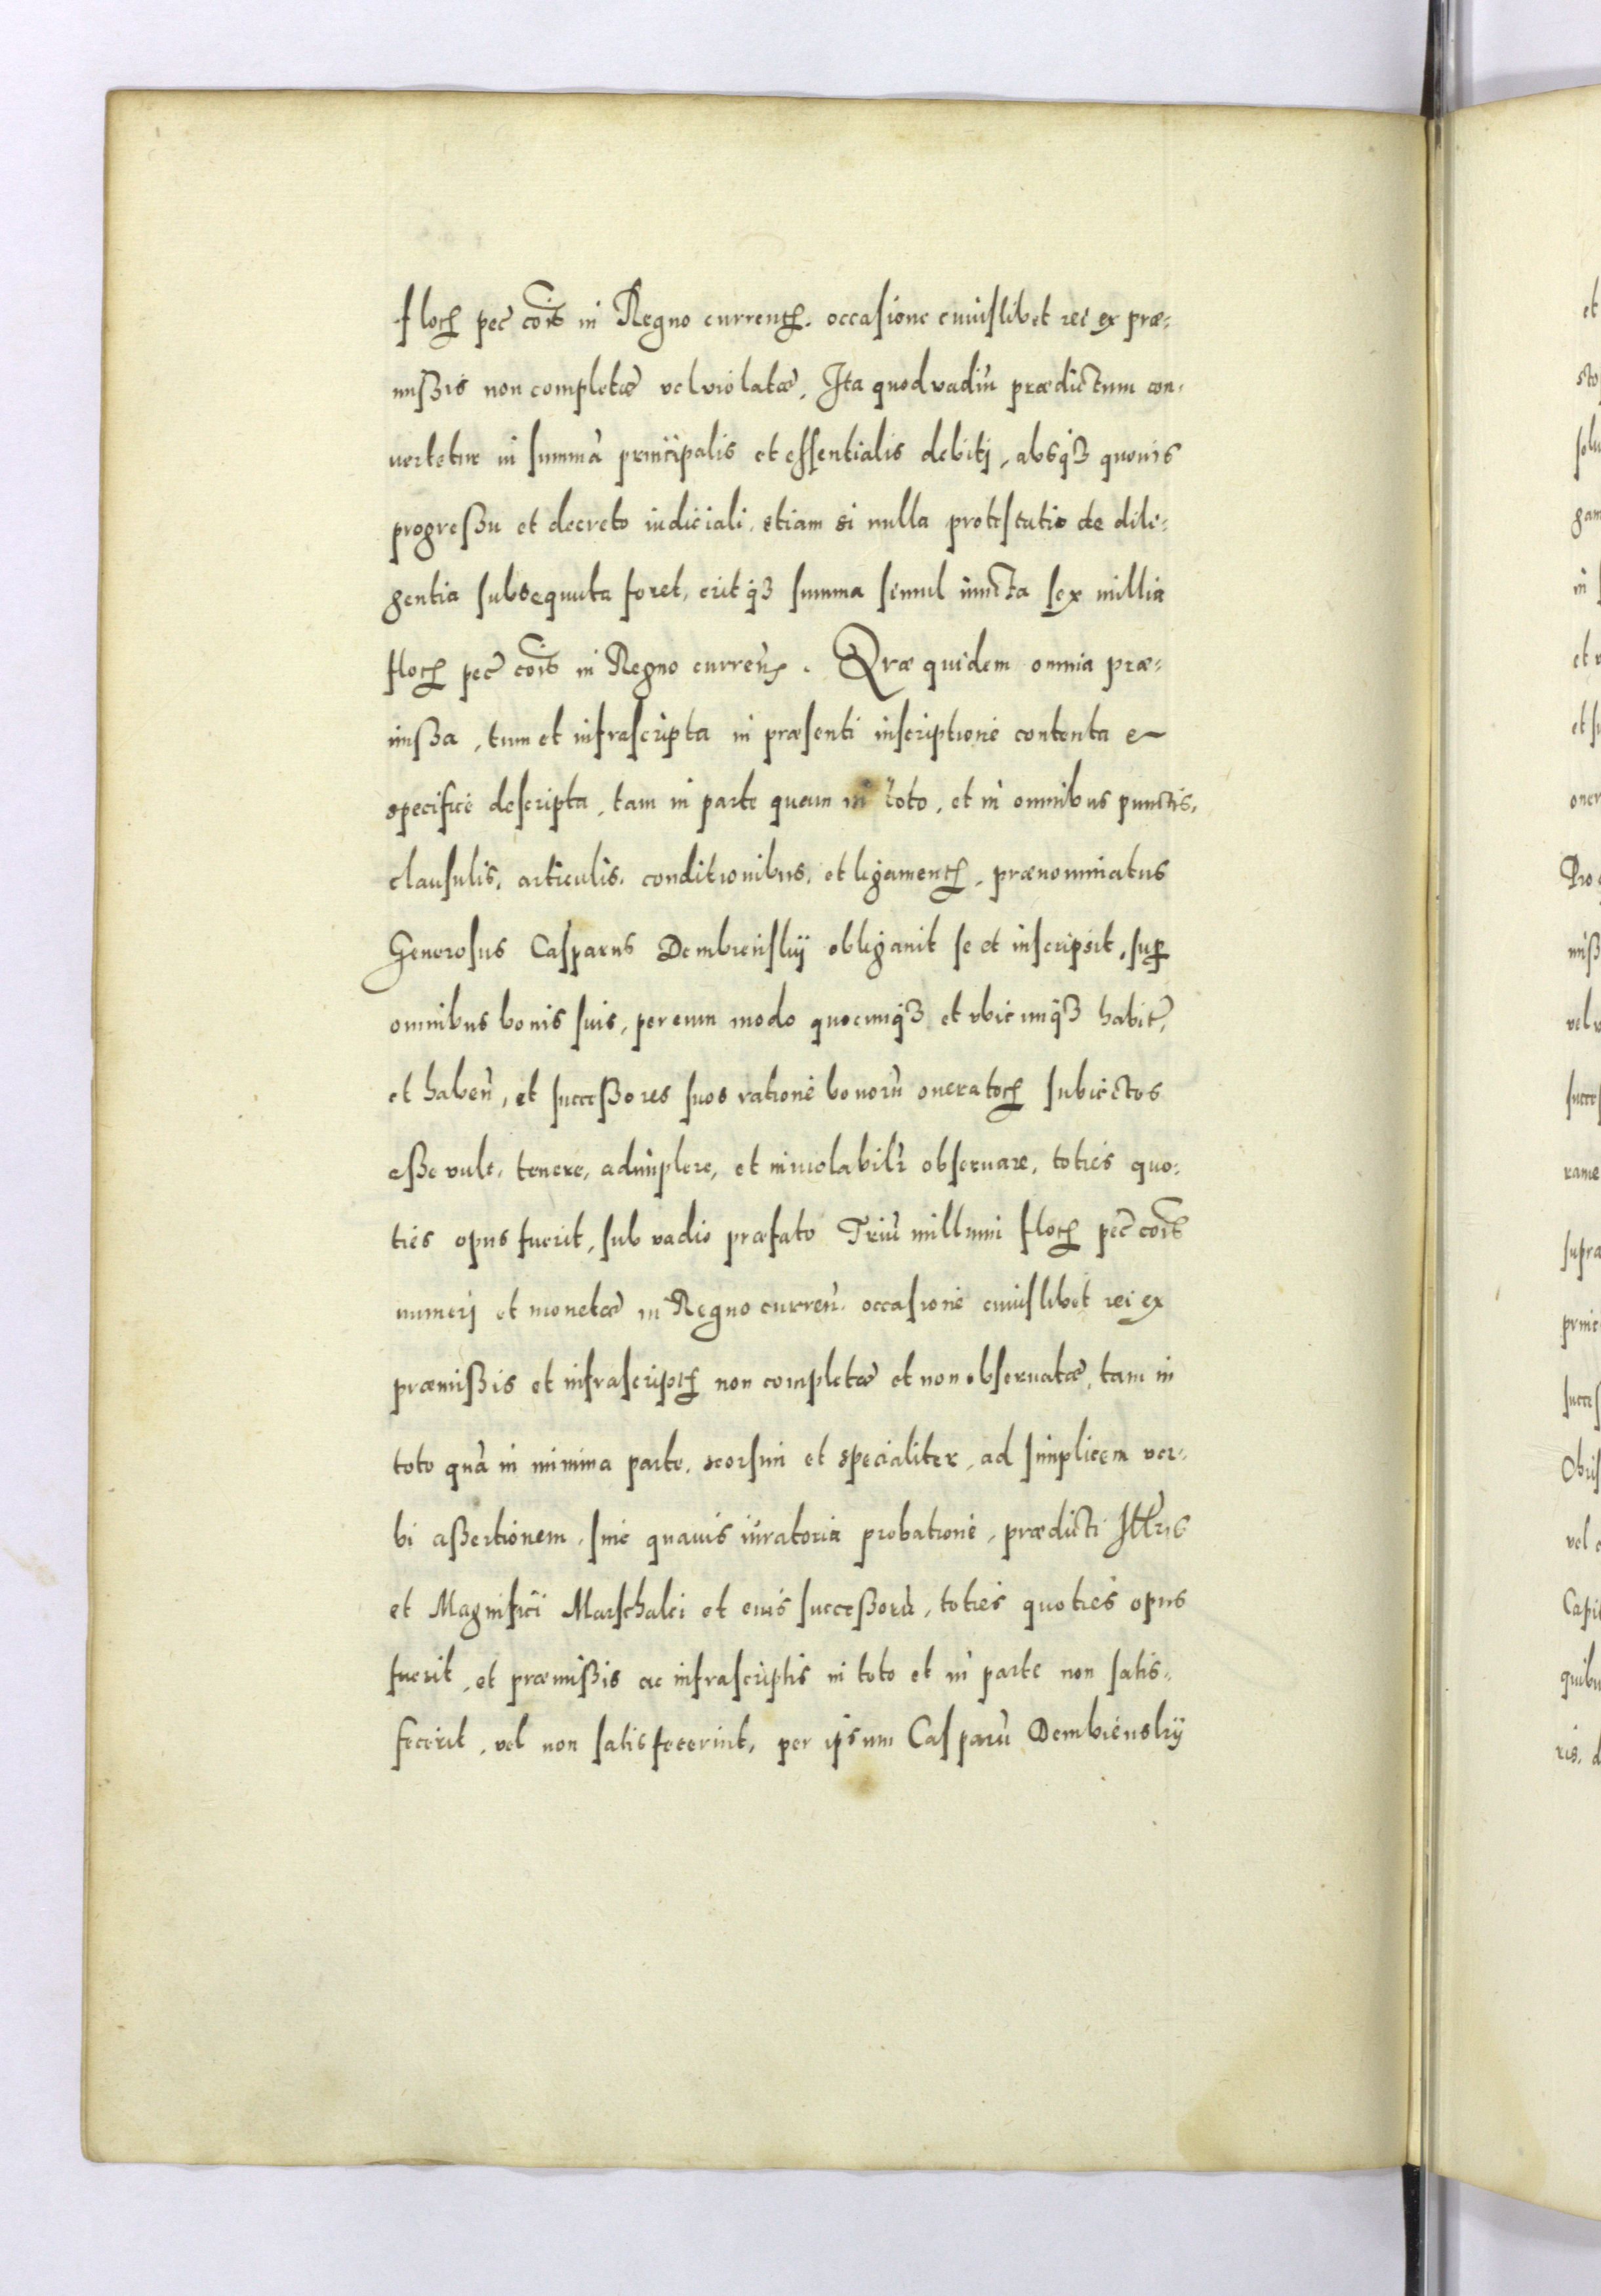 floꝝ pec̃ cõis in Regno currenꝝ. occasione cuiuslibet rei ex præ-
mißis non completæ vel violatæ. Ita quod vadiũ prædictum con-
uertetur in summã principalis et essentialis debitj, absqꝫ quouis
progreßu et decreto iudiciali. etiam si nulla protestatio de dili-
gentia subsequuta foret, eritqꝫ summa simul iuncta sex millia
floꝝ pec̃ cõis in Regno curreñ. Quæ quidem omnia præ-
mißa, tum et infrascripta in præsenti inscriptione contenta et
specifice descripta, tam in parte quam in toto, et in omnibus punctis,
clausulis, articulis, conditionibus, et ligamentꝝ, prænominatus
Generosus Casparus Dembienskÿ obligauit se et inscripsit, suꝑ
omnibus bonis suis, per eum modo quocunqꝫ et vbicunqꝫ habit̃,
et habeñ, et succeßores suos ratione bonorũ oneratoꝝ subiectos
eße vult, tenere, adimplere, et inuiolabilr̃ obseruare, toties quo-
ties opus fuerit, sub vadio præfato Triũ millium floꝝ pec̃ cõis
numerj et monetæ in Regno curreñ. occasione cuiuslibet rei ex
præmißis et infrascriptꝝ non completæ et non obseruatæ, tam in
toto quã in minima parte, seorsim et specialiter, ad simplicem ver-
bi aßertionem, sine quauis iuratoria probatione, prædicti Illr̃is
et Magnifici Marschalci et eius succeßorũ, toties quoties opus
fuerit, et præmißis ac infrascriptis in toto et in parte non satis-
fecerit, vel non satisfecerint, per ipsum Casparũ Dembienskÿ